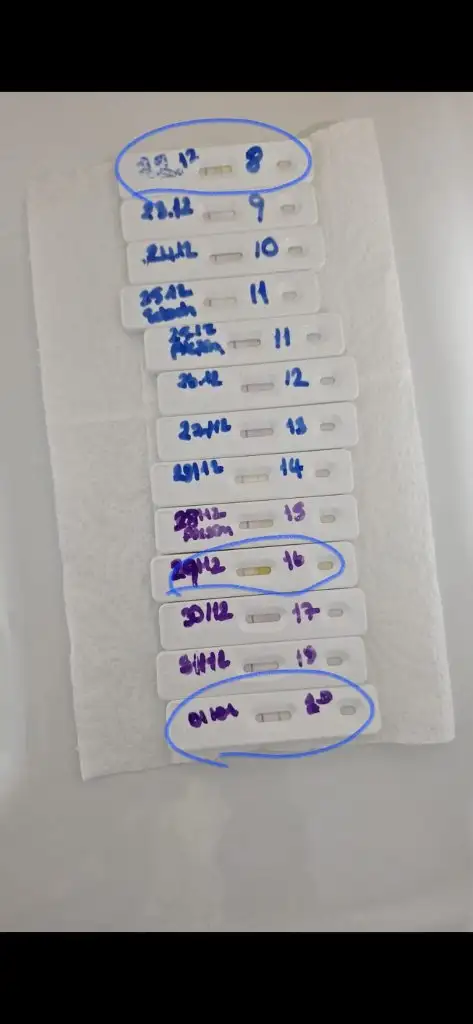 22.12 8
23.12 9
24.12 10
25.12 11
Sabah
25.12 11
Akşam
26.12 12
27/12 13
28/12 14
28/12 15
Akşam
29/12 16
30/12 17
31/12 18
01/01 20